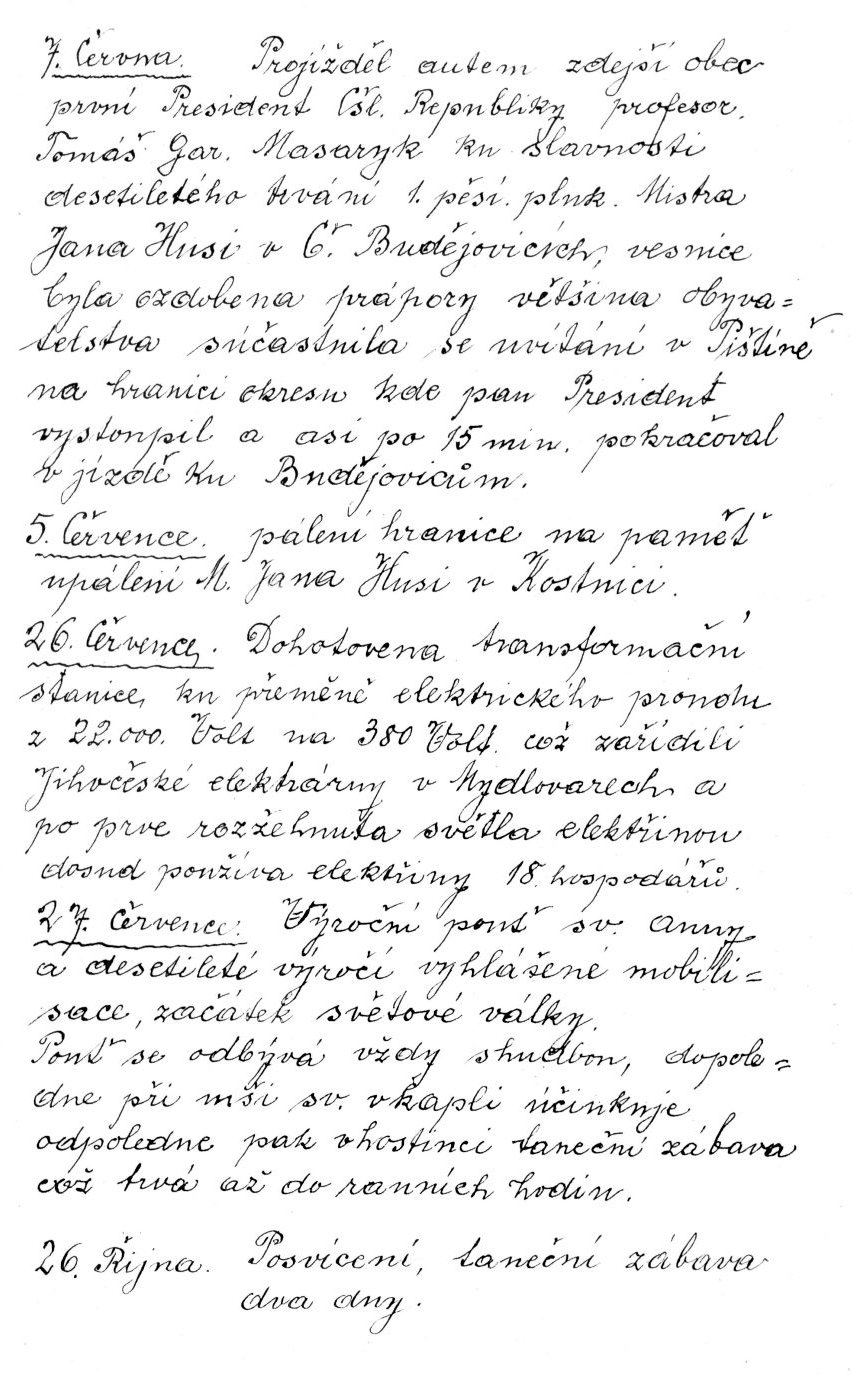 7. Června. Projížděl autem zdejší obec
první President Čsl. Republiky profesor.
Tomáš Gar. Masaryk ku slavnosti
desetiletého trvání 1. pěší. pluk. Mistra
Jana Husi v Č. Budějovicích, vesnice
byla ozdobena prápory většina obyva=
telstva súčastnila se uvítání v Pištíně
na hranici okresu kde pan President
vystoupil a asi po 15 min. pokračoval
v jízdě ku Budějovicům.
5. Července. pálení hranice na paměť
upálení M. Jana Husi v Kostnici.
26. Července. Dohotovena transformační
stanice, ku přeměně elektrického proudu
z 22.000. Volt na 380 Volt. což zařídili
Jihočeské elektrárny v Mydlovarech a
po prve rozžehnuta světla elektřinou
dosud používa elektřiny 18. hospodářů.
27. Července. Výroční pouť sv. Anny
a desetileté výročí vyhlášené mobili=
sace, začátek světové války.
Pouť se odbývá vždy shudbou, dopole=
dne při mši sv. vkapli účinkuje
odpoledne pak vhostinci taneční zábava
což trvá až do ranních hodin.
26. Října. Posvícení, taneční zábava
dva dny.